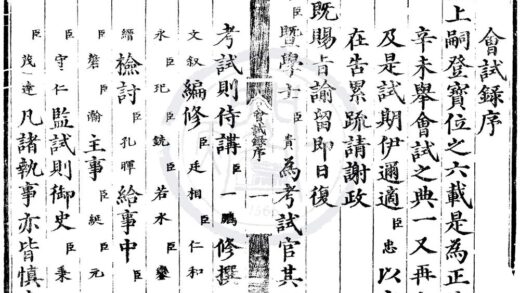 會試錄序
上嗣登寶位之六載是為正
辛未舉會試之典一又再
及是試期伊邇適臣忠以
在告累疏請謝政
既賜旨諭留即日復
臣暨學士臣貴為考試官其
會試錄序 一
考試則侍講臣一鵬修撰
文叙編修臣廷相臣仁和
永臣玘臣銑臣若水臣鑾
縉檢討臣孔暉給事中
臣磐臣瀚主事臣綖臣元
臣守仁監試則御史臣秉
臣茂達凡諸執事亦皆慎